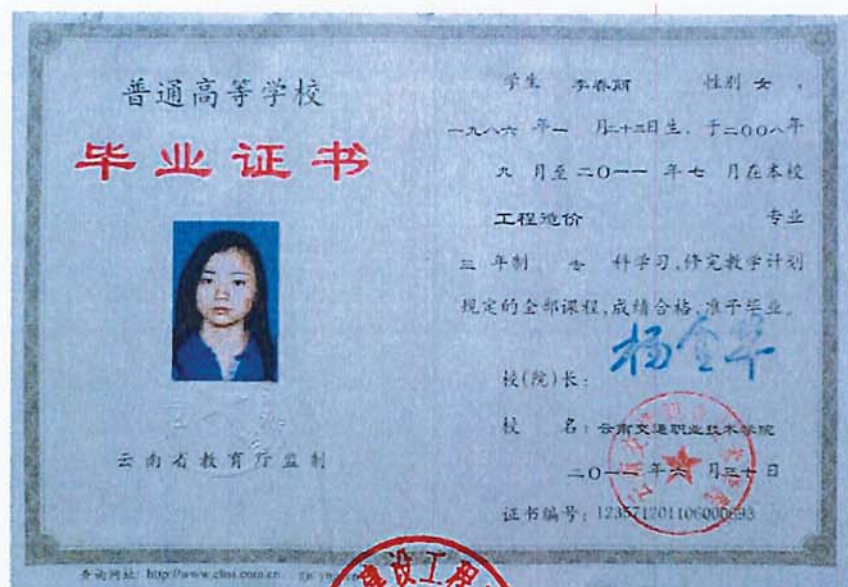 普通高等学校
毕业证书
云南省教育厅监制
学生 李春丽 性别 女 ，
一九八六 年 一 月二十三日生，于二〇〇八年
九 月至 二〇一一 年 七 月在本校
工程造价 专业
三 年制 专 科学习，修完教学计划
规定的全部课程，成绩合格，准予毕业。
校(院)长：
校 名：云南交通职业技术学院
二〇一一 年 六 月三十日
证书编号：123571201106000693
查询网址：http://www.chsi.com.cn
建设工程